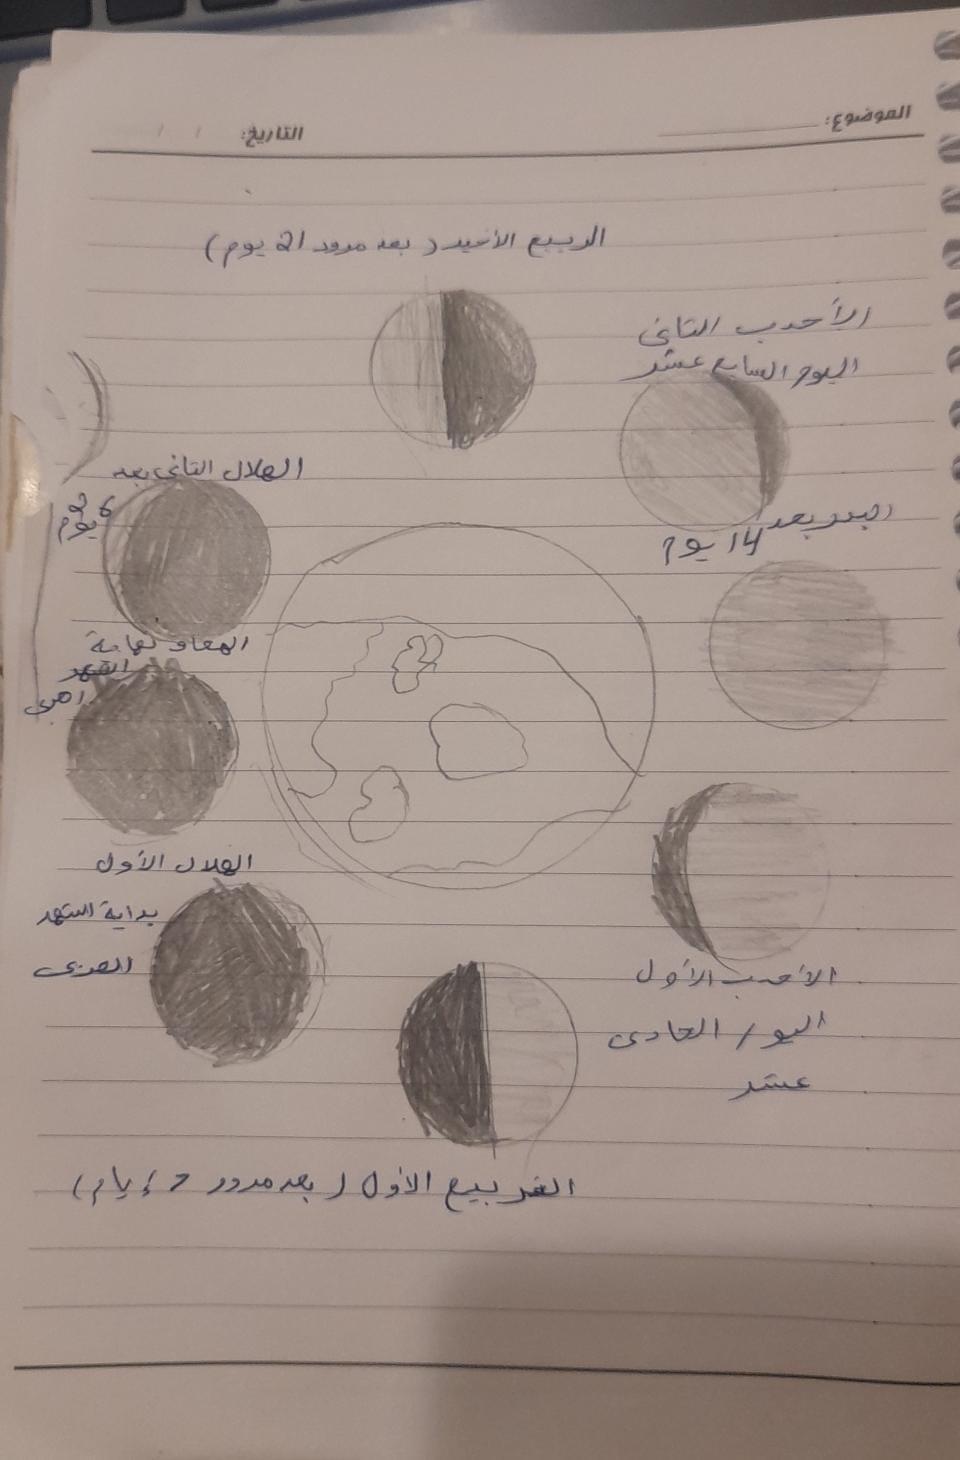 الموضوع:
التاريخ: / /
الربيع الأخير ( بعد مرور 21 يوم )
الأحدب الثاني
اليوم السابع عشر
الهلال الثاني بعد
26 يوم
البدر بعد
14 يوم
المحاق نهاية
الشهر
الهلال الأول
بداية الشهر
العربى
الأحدب الأول
اليوم الحادى
عشر
التربيع الأول ( بعد مرور 7 أيام )